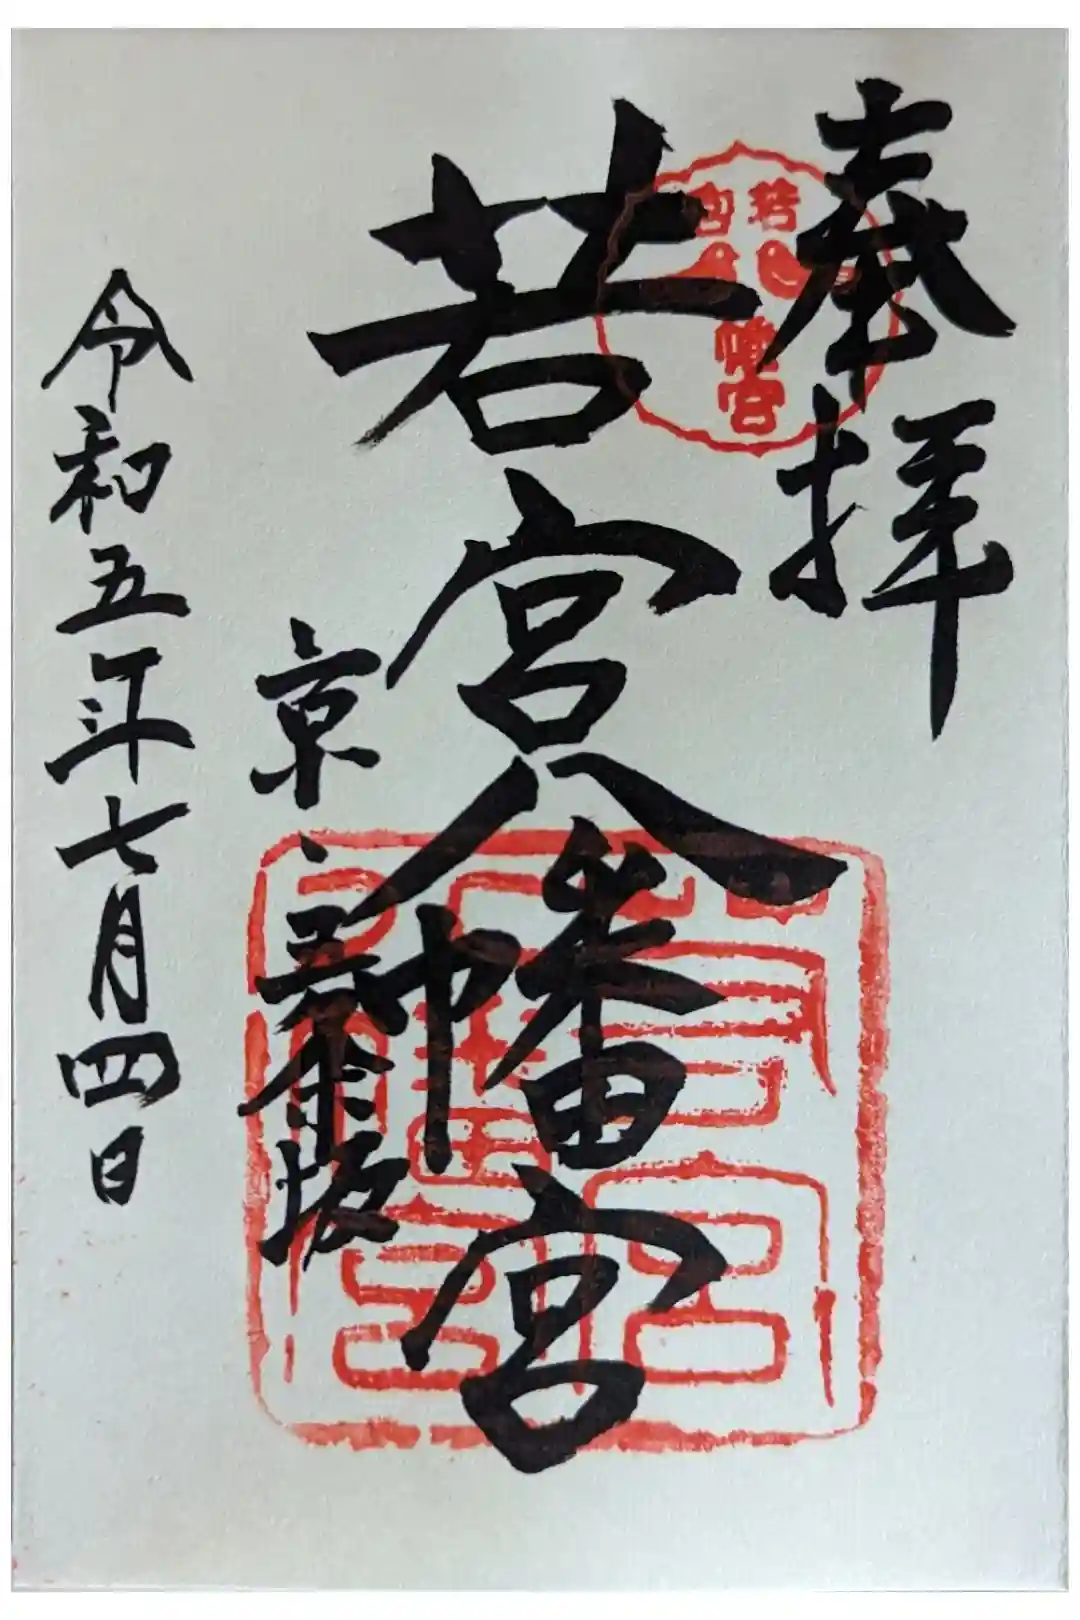 奉拝
若宮八幡宮
京、五条坂
令和五年七月四日
若宮
幡宮